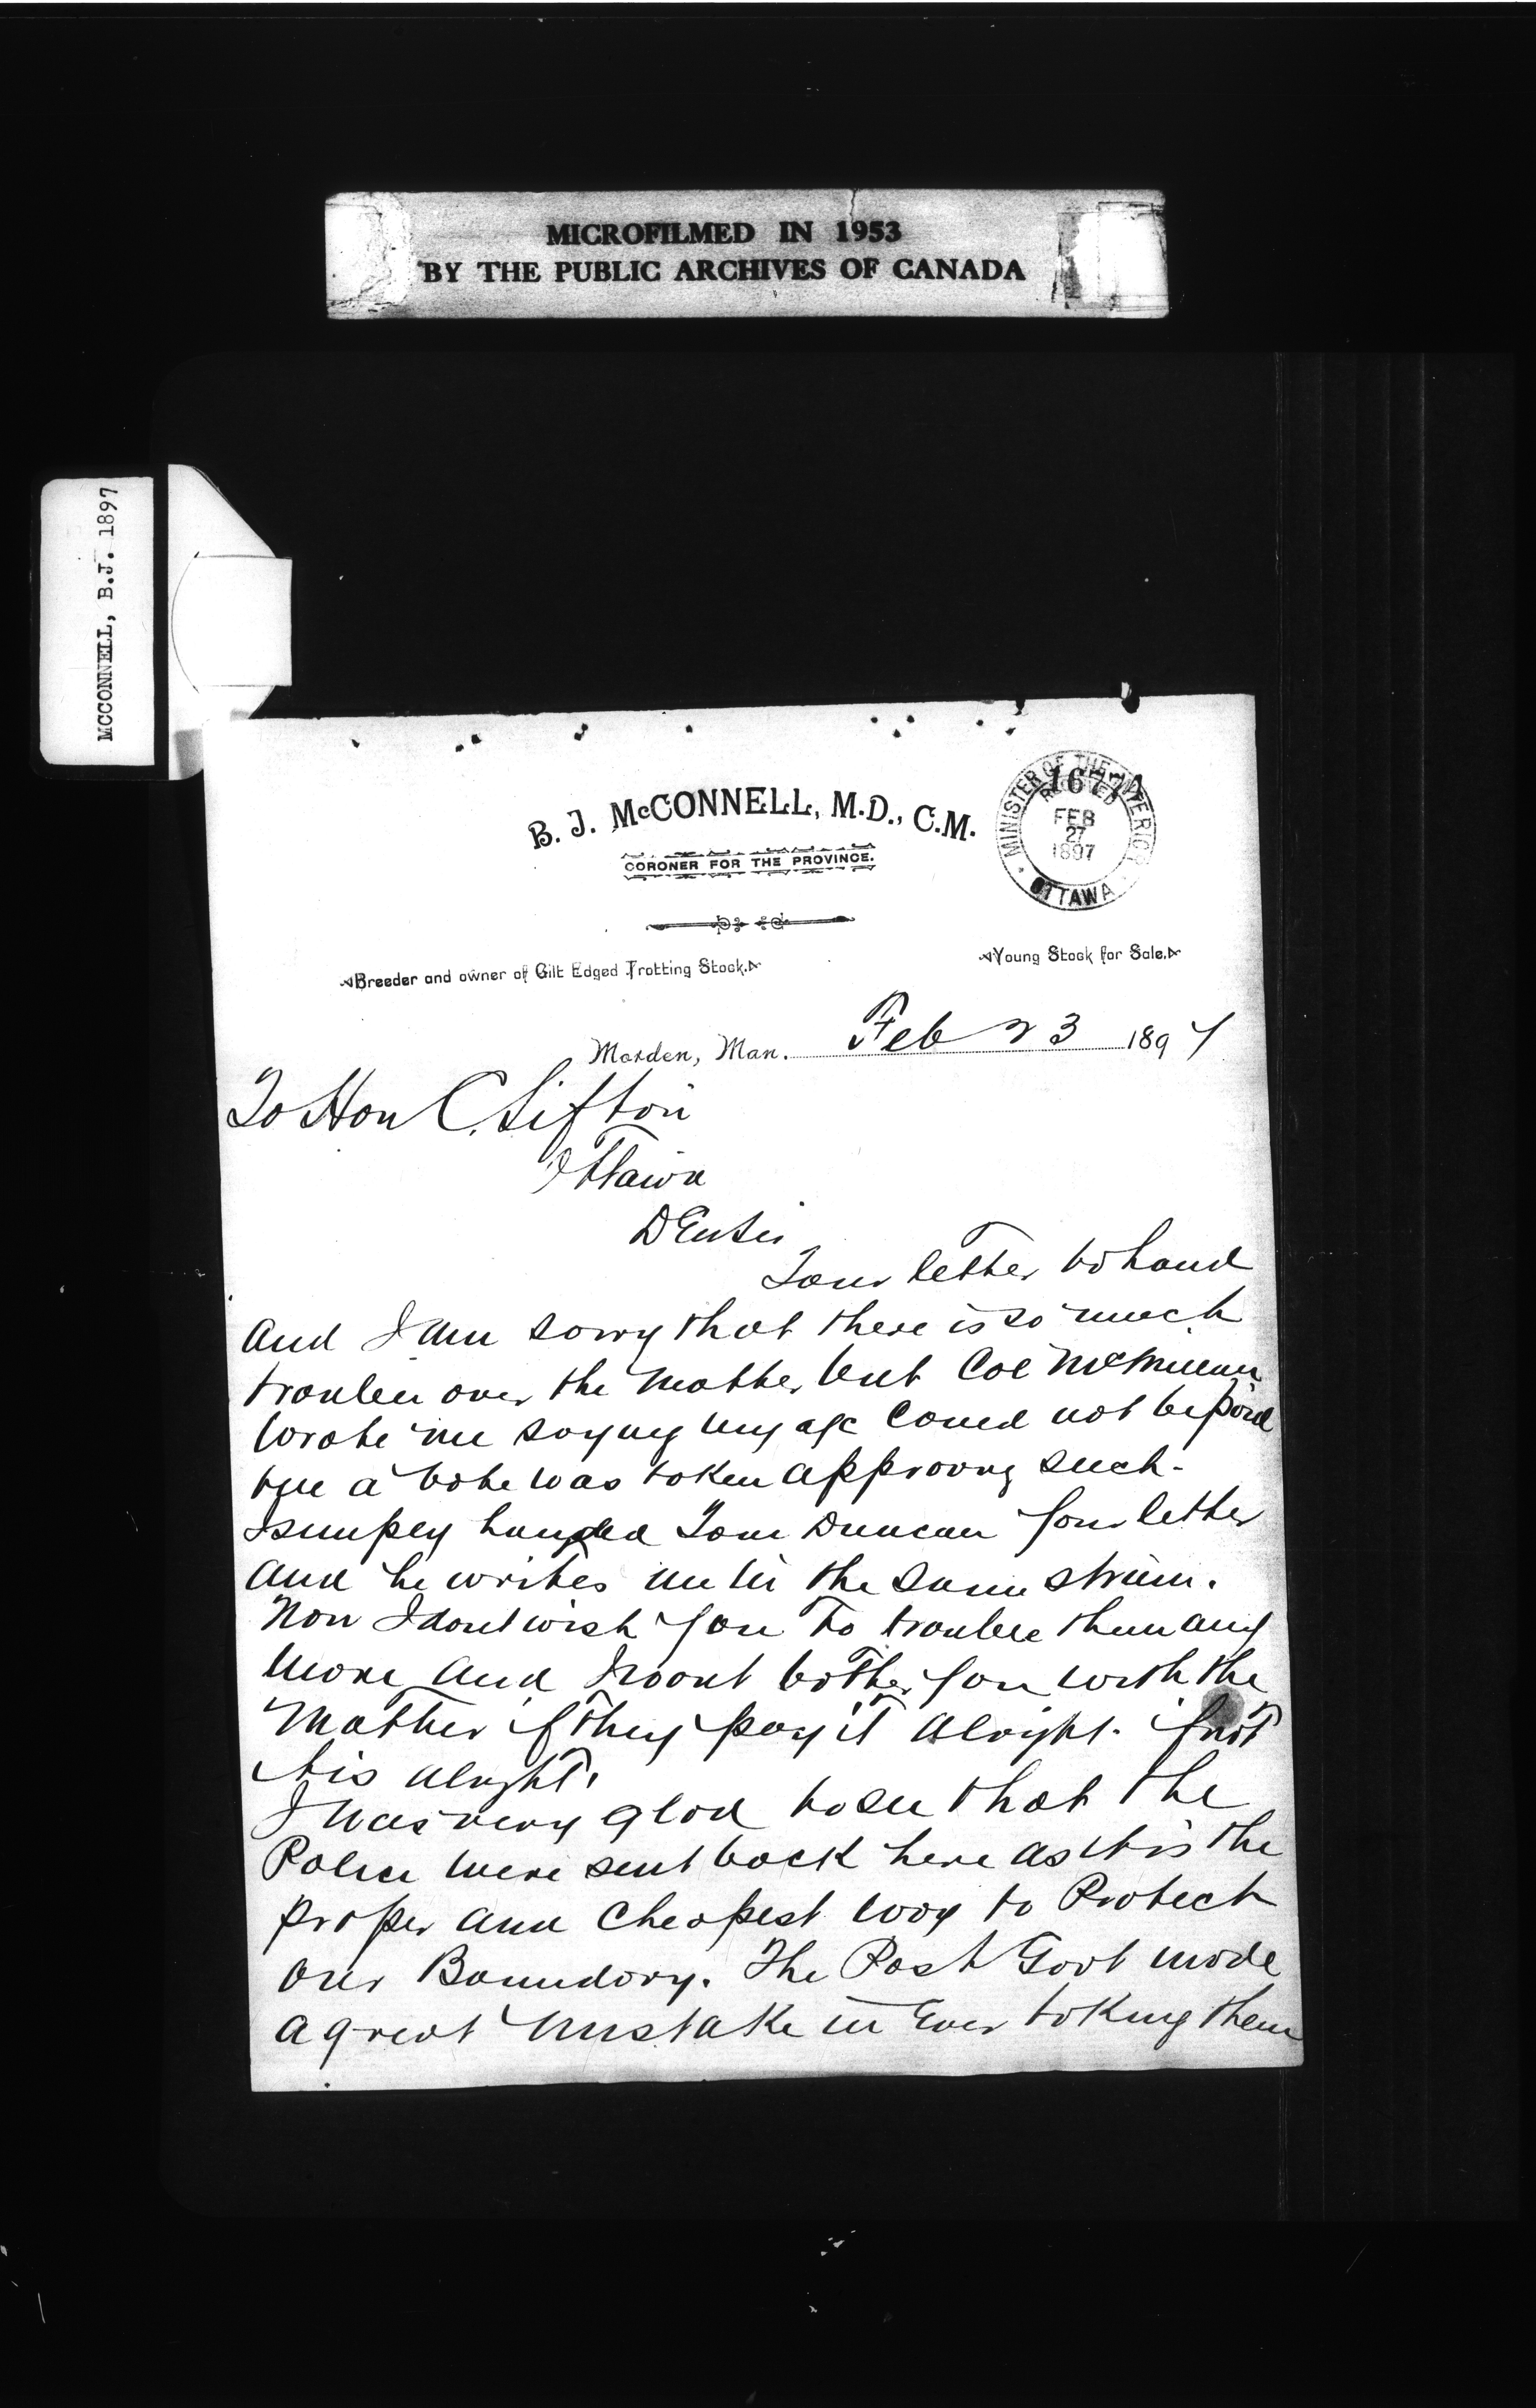 MICROFILMED IN 1953
BY THE PUBLIC ARCHIVES OF CANADA
MCCONNELL, B.J. 1897
B. J. McCONNELL, M.D., C.M.
CORONER FOR THE PROVINCE.
MINISTER OF THE INTERIOR
1677
RECEIVED
FEB
27
1897
OTTAWA
Breeder and owner of Gilt Edged Trotting Stock.
Young Stock for Sale.
Morden, Man. Feb 23 1897
To Hon C. Sifton
Ottawa
D Sir
Your letter to hand
and I am sorry that there is so much
trouble over the matter but Col McMillan
wrote me saying my a/c could not be paid
till a vote was taken approving such.
I simply handed Tom Duncan your letter
and he writes me in the same strain.
Now I dont wish you to trouble them any
more and I wont bother you with the
matter if they pay it alright. if not
tis alright.
I was very glad to see that the
Police were sent back here as it is the
proper and cheapest way to Protect
our Boundary. The Past Govt made
a great mistake in ever taking them